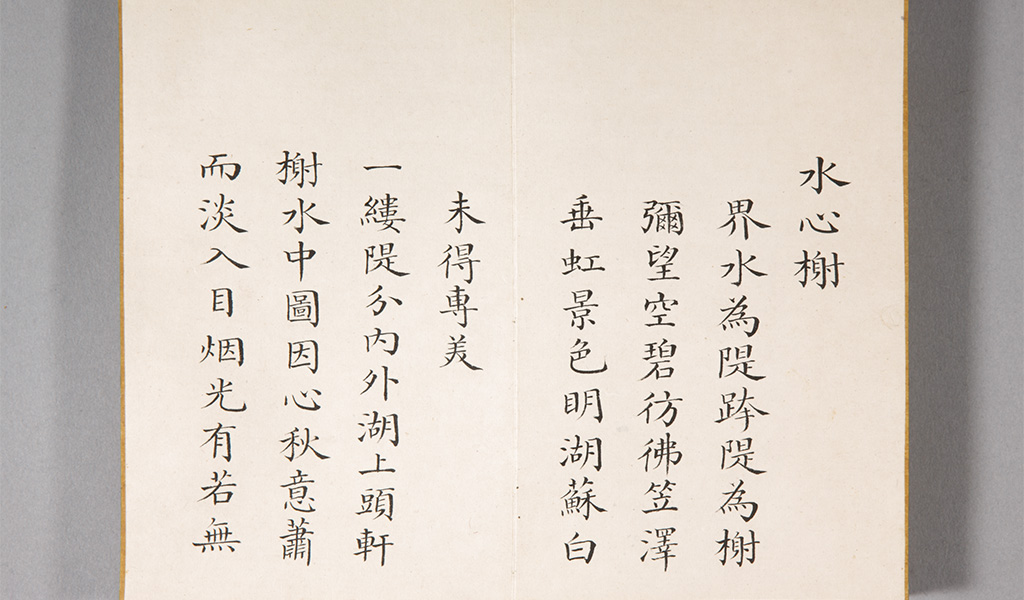 水心榭
界水為隄跨隄為榭
彌望空碧彷彿笠澤
垂虹景色明湖蘇白
未得專美
一縷隄分內外湖上頭軒
榭水中圖因心秋意蕭
而淡入目烟光有若無